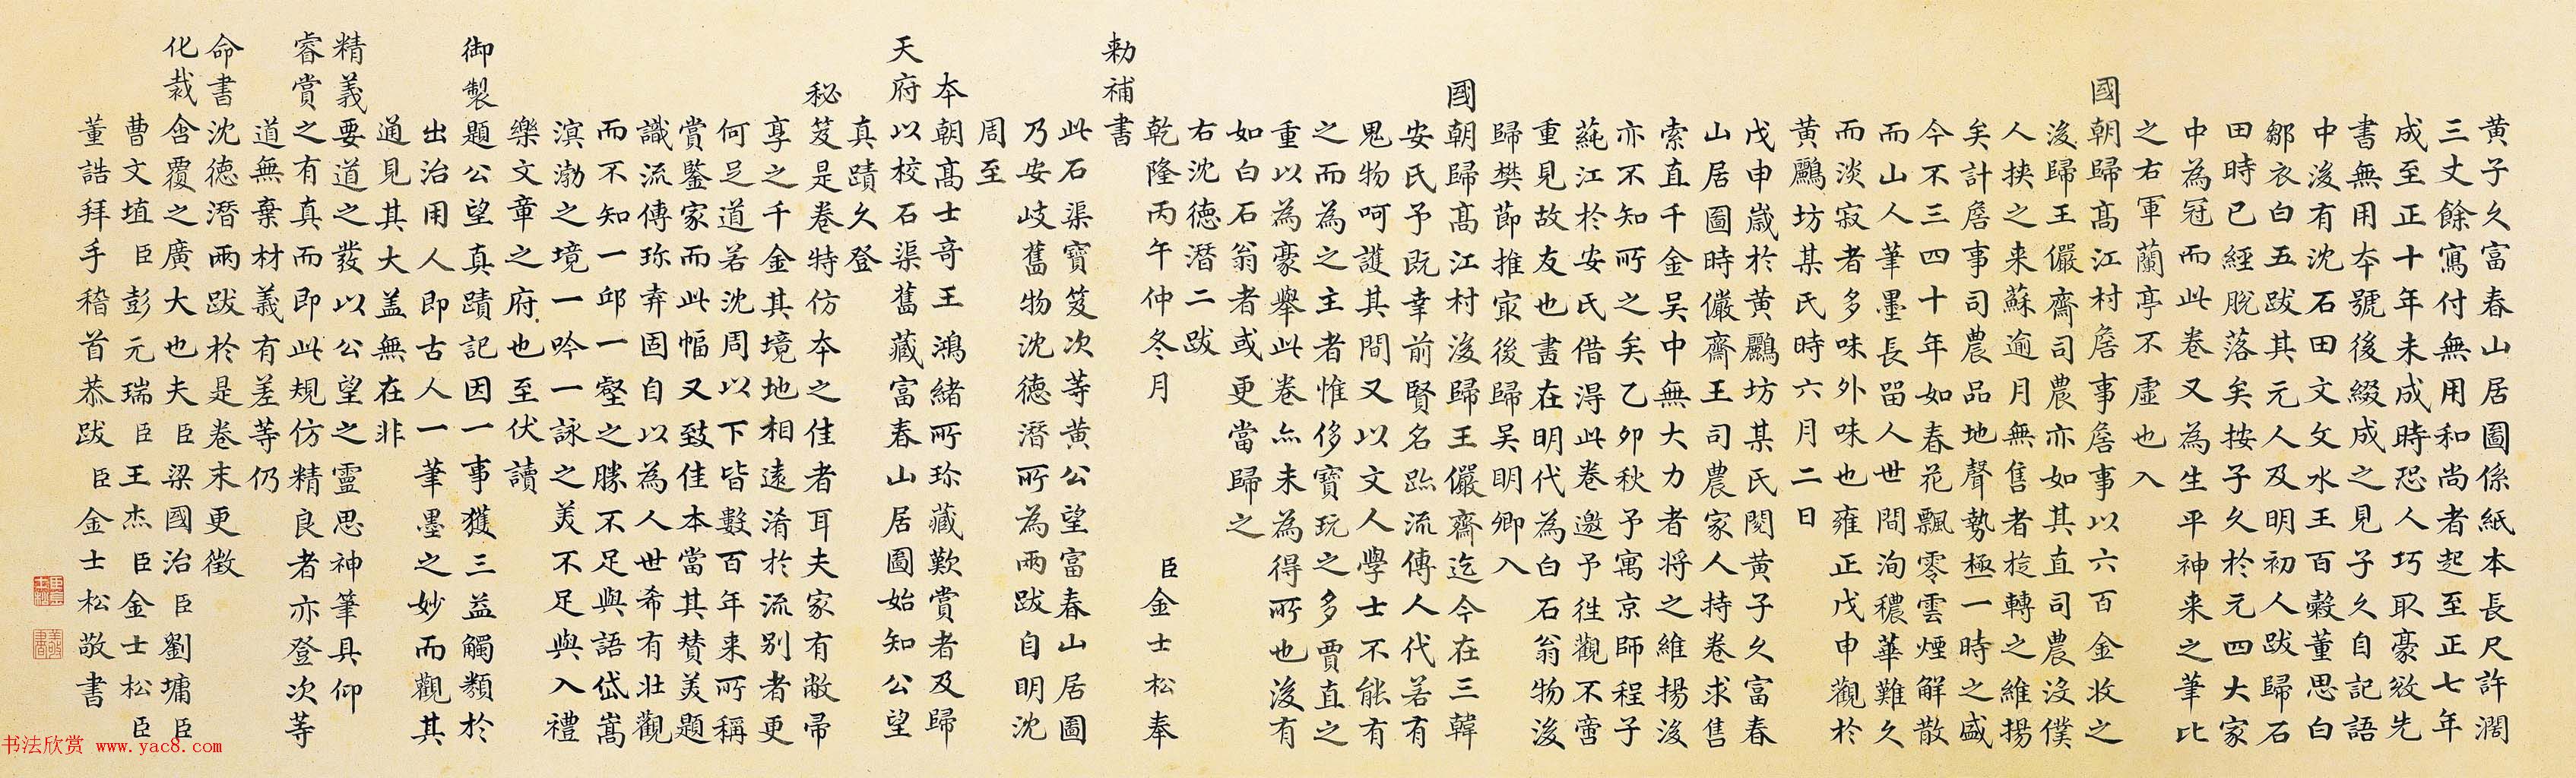 黃子久富春山居圖係紙本長尺許濶
三丈餘寫付無用和尚者起至正七年
成至正十年未成時恐人巧取豪效先
書無用本號後綴成之見子久自記語
中後有沈石田文文水王百穀董思白
鄒衣白五跋其元人及明初人跋歸石
田時已經脫落矣按子久於元四大家
中為冠而此卷又為生平神来之筆比
之右軍蘭亭不虛也入
國朝歸髙江村詹事詹事以六百金收之
後歸王儼齋司農亦如其直司農沒僕
人挾之来蘇逾月無售者旋轉之維揚
矣計詹事司農品地聲勢極一時之盛
今不三四十年如春花飄零雲煙解散
而山人筆墨長留人世間洵穠華難久
而淡寂者多味外味也雍正戊申觀於
黃鸝坊某氏時六月二日
戊申歲於黃鸝坊某氏閱黃子久富春
山居圖時儼齋王司農家人持卷求售
索直千金吴中無大力者将之維揚後
亦不知所之矣乙卯秋予寓京師程子
蒓江於安氏借得此卷邀予徃觀不啻
重見故友也畫在明代為白石翁物後
歸樊節推冣後歸吴明卿入
國朝歸髙江村後歸王儼齋迄今在三韓
安氏予既幸前賢名跡流傳人代若有
鬼物呵護其間又以文人學士不能有
之而為之主者惟侈寶玩之多賈直之
重以為豪舉此卷亦未為得所也後有
如白石翁者或更當歸之
右沈徳潛二跋
乾隆丙午仲冬月 臣金士松奉
勅補書
此石渠寶笈次等黃公望富春山居圖
乃安岐舊物沈徳潛所為兩跋自明沈
周至
本朝髙士竒王鴻緒所珍藏歎賞者及歸
天府以校石渠舊藏富春山居圖始知公望
真蹟久登
秘笈是卷特仿本之佳者耳夫家有敝帚
享之千金其境地相遠淆於流别者更
何足道若沈周以下皆數百年来所稱
賞鑒家而此幅又致佳本當其賛美題
識流傳珍弆固自以為人世希有壮觀
而不知一邱一壑之勝不足與語岱嵩
溟渤之境一吟一詠之美不足與入禮
樂文章之府也至伏讀
御製題公望真蹟記因一事獲三益觸類於
出治用人即古人一筆墨之妙而觀其
通見其大盖無在非
精義要道之發以公望之靈思神筆具仰
睿賞之有真而即此規仿精良者亦登次等
道無棄材義有差等仍
命書沈徳潛兩跋於是卷末更徵
化裁含覆之廣大也夫臣梁國治臣劉墉臣
曹文埴臣彭元瑞臣王杰臣金士松臣
董誥拜手稽首恭跋臣金士松敬書
书法欣赏 www.yac8.com